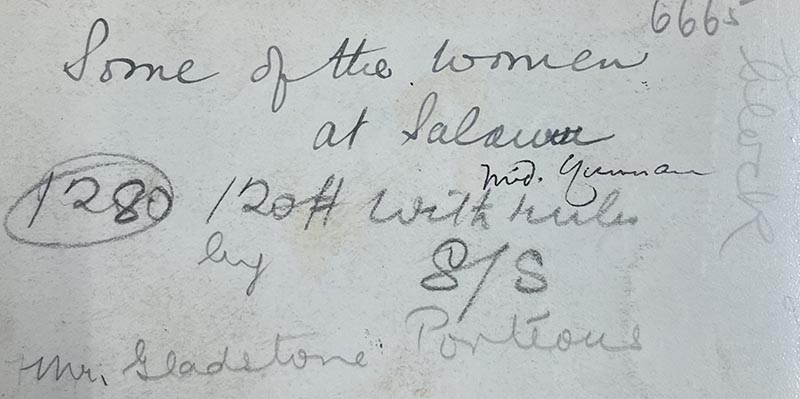 6665
Some of the women
at Salowu
Mid. Yunnan
1280 120# with rules
by S/S
Mr. Gladstone Porteous
block